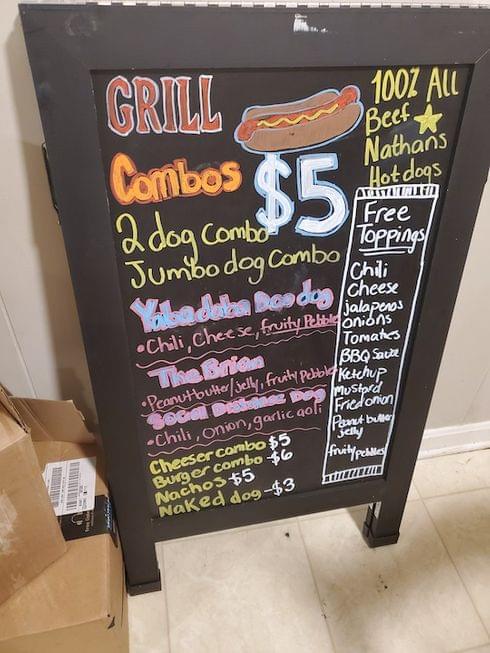 GRILL
100% All
Beef
Nathans
Hot dogs
Combos
$5
2 dog Combo
Jumbo dog Combo
Yaba daba Doo dog
•Chili, Cheese, fruity Pebbles
The Brian
•Peanutbutter/jelly, fruity Pebbles
Social Distance Dog
•Chili, onion, garlic aoli
Cheeser combo $5
Burger combo $6
Nachos $5
Naked dog -$3
Free
Toppings
Chili
Cheese
jalapenos
onions
Tomatoes
BBQ Sauce
Ketchup
Mustard
Fried onion
Peanut butter
Jelly
fruity Pebbles